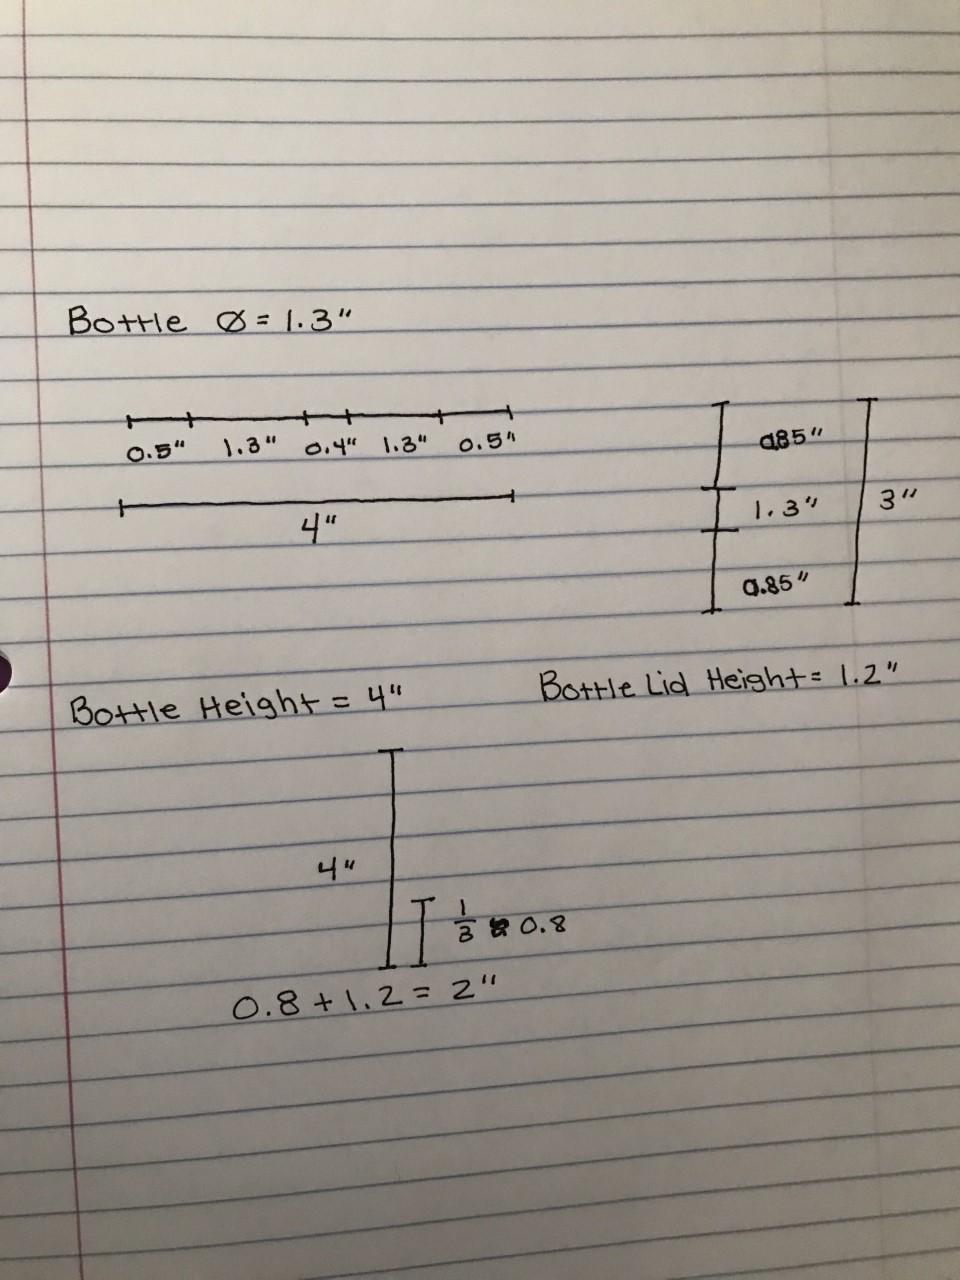 Bottle Ø = 1.3"
0.5" 1.3" 0.4" 1.3" 0.5"
4"
0.85"
1.3"
0.85"
3"
Bottle Height = 4"
Bottle Lid Height = 1.2"
4"
1/3 ≈ 0.8
0.8 + 1.2 = 2"